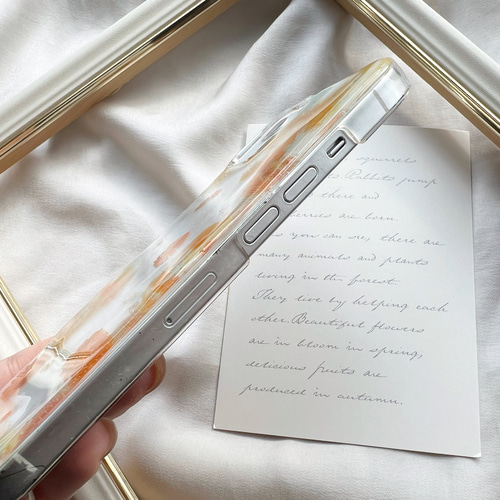 squirrels
Rabbits jump
there and
berries are born.
you can see, there are
many animals and plants
living in the forest.
They live by helping each
other. Beautiful flowers
are in bloom in spring,
delicious fruits are
produced in autumn.